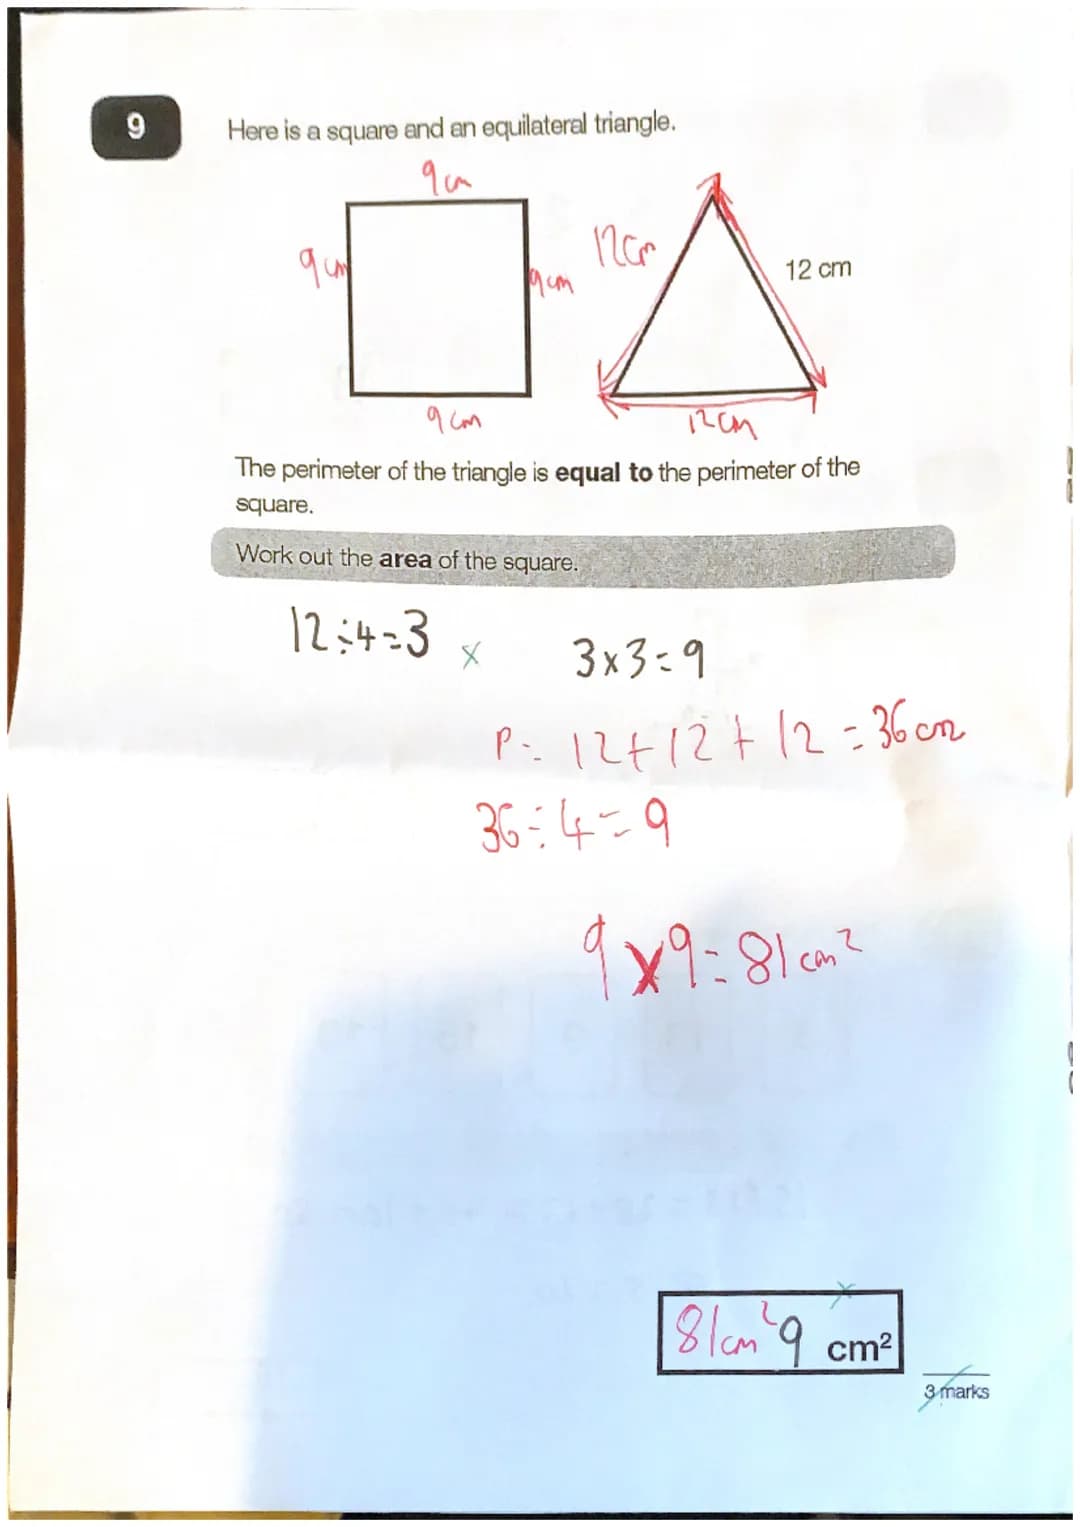 9
Here is a square and an equilateral triangle.
9cm
9cm
9cm
12cm
12 cm
9cm
12cm
The perimeter of the triangle is equal to the perimeter of the
square.
Work out the area of the square.
12÷4=3 x
3x3=9
P= 12+12+12=36cm
36÷4=9
9x9=81cm²
81cm² 9 cm²
3 marks